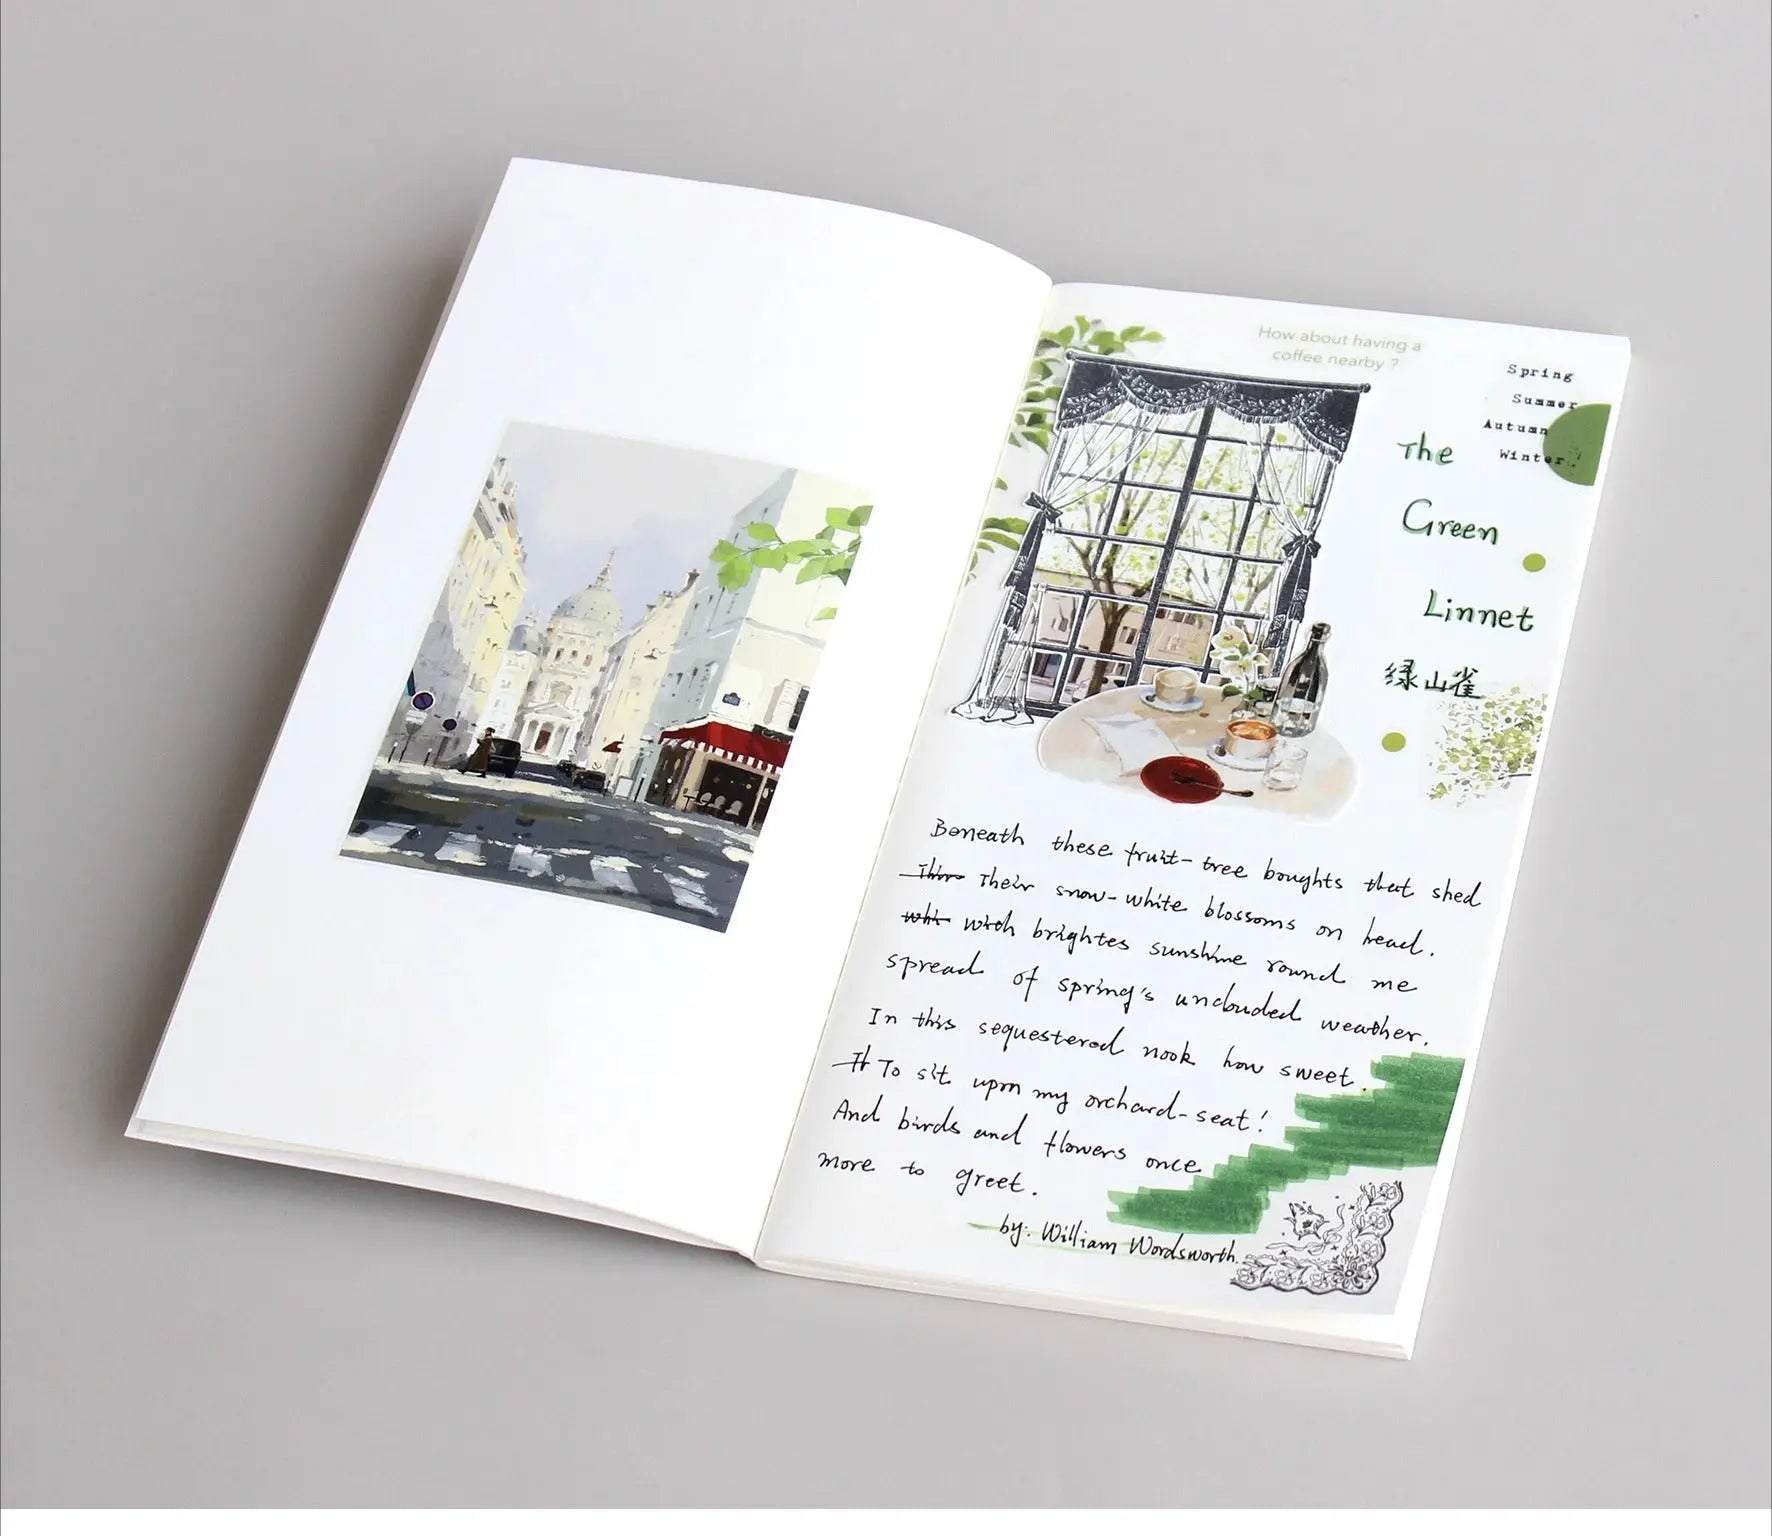 How about having a
coffee nearby ?
Spring
Summer
Autumn
Winter
The
Green
Linnet
绿山雀
Beneath these fruit-tree boughts that shed
Thir Their snow-white blossoms on head.
whi with brightes sunshine round me
spread of spring's unclouded weather.
In this sequestered nook how sweet
It To sit upon my orchard-seat!
And birds and flowers once
more to greet.
by: William Wordsworth.